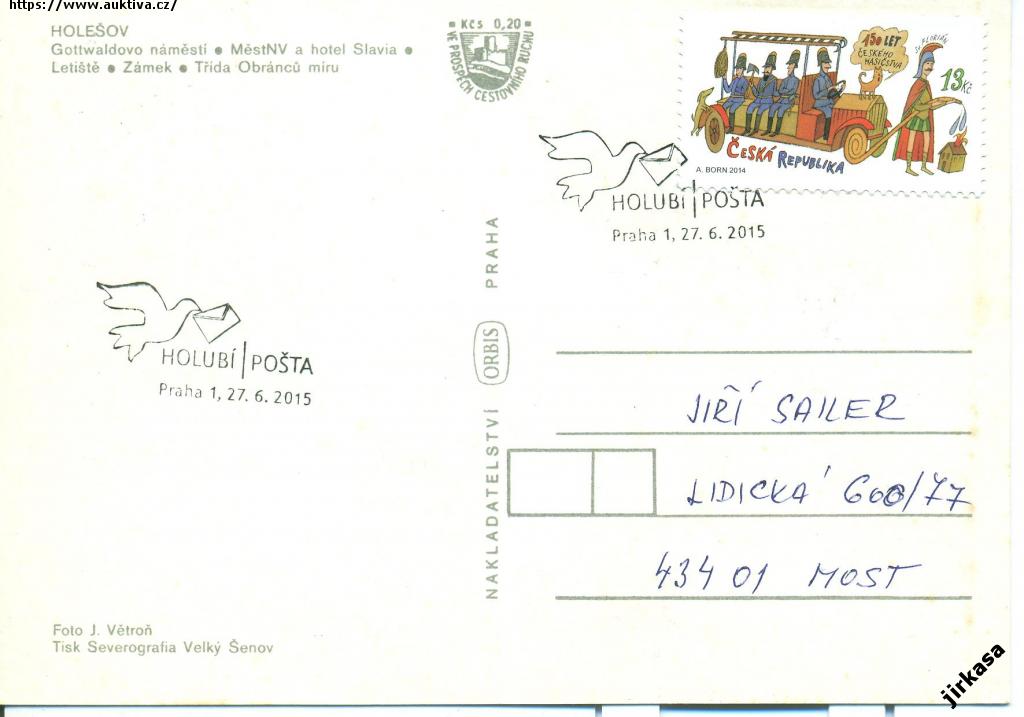 https://www.auktiva.cz/
HOLEŠOV
Gottwaldovo náměstí ● MěstNV a hotel Slavia ●
Letiště ● Zámek ● Třída Obránců míru
Kčs 0,20
VE PROSPĚCH CESTOVNÍHO RUCHU
150 LET
ČESKÉHO
HASIČSTVA
Sv. FLORIÁN
13 Kč
ČESKÁ REPUBLIKA
A. BORN 2014
HOLUBÍ POŠTA
Praha 1, 27. 6. 2015
HOLUBÍ POŠTA
Praha 1, 27. 6. 2015
NAKLADATELSTVÍ ORBIS PRAHA
JIŘÍ SAILER
LIDICKÁ 606/77
434 01 MOST
Foto J. Větroň
Tisk Severografia Velký Šenov
jirkasa